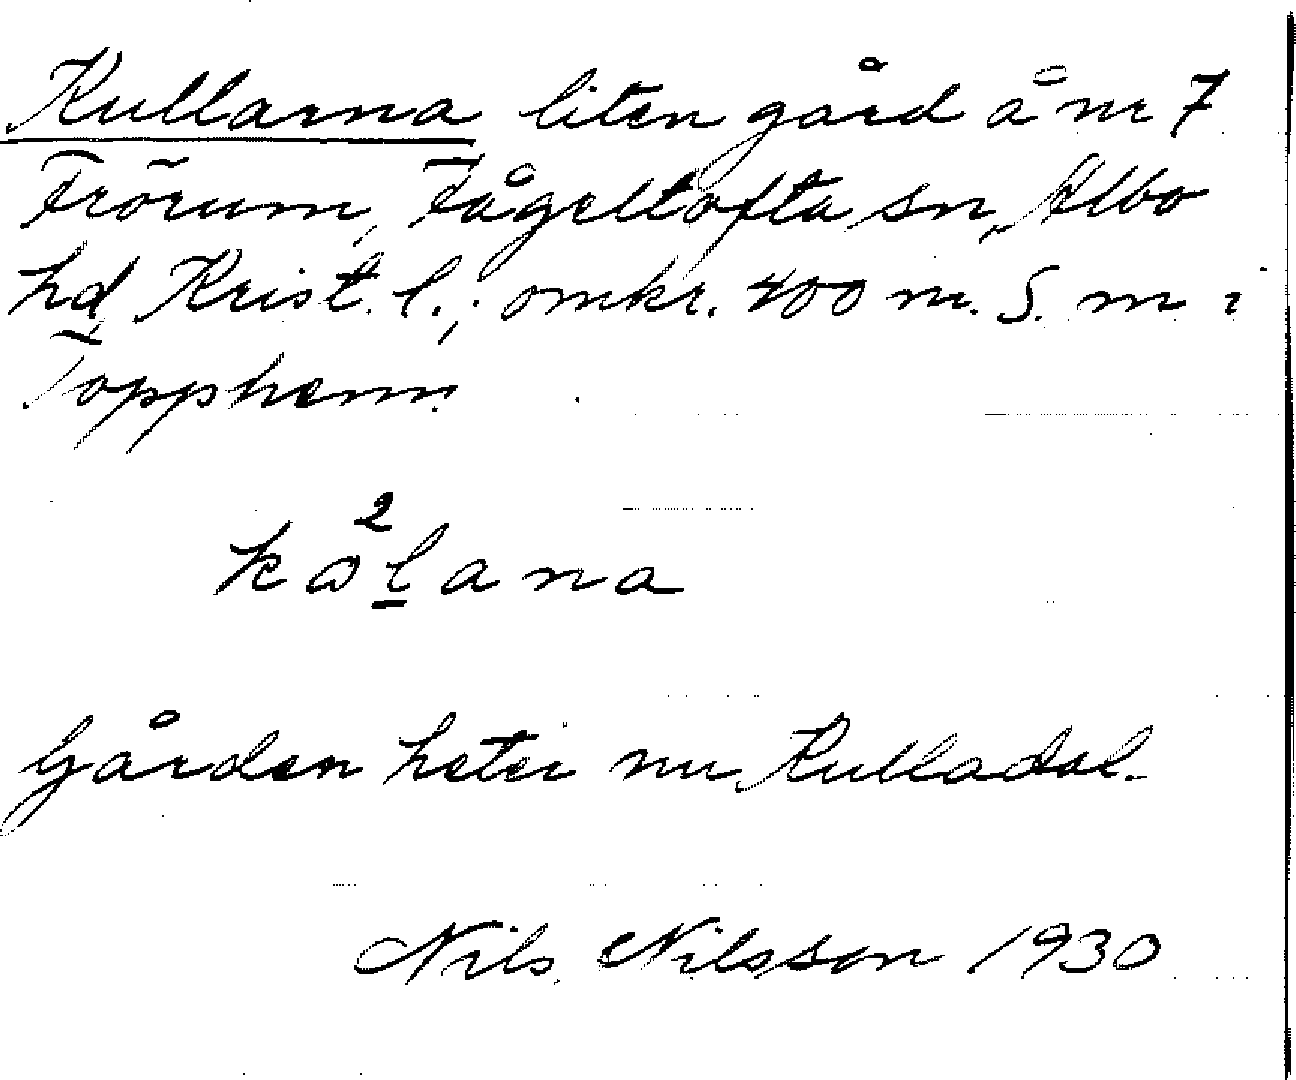 Kullarna liten gård å nr 7
Frörum, Fågeltofta sn, Albo
hd Krist. l.; omkr. 400 m. S. m i
Topphem.
kɷ²l̲ana
Gården heter nu Kulladal.
Nils Nilsson 1930